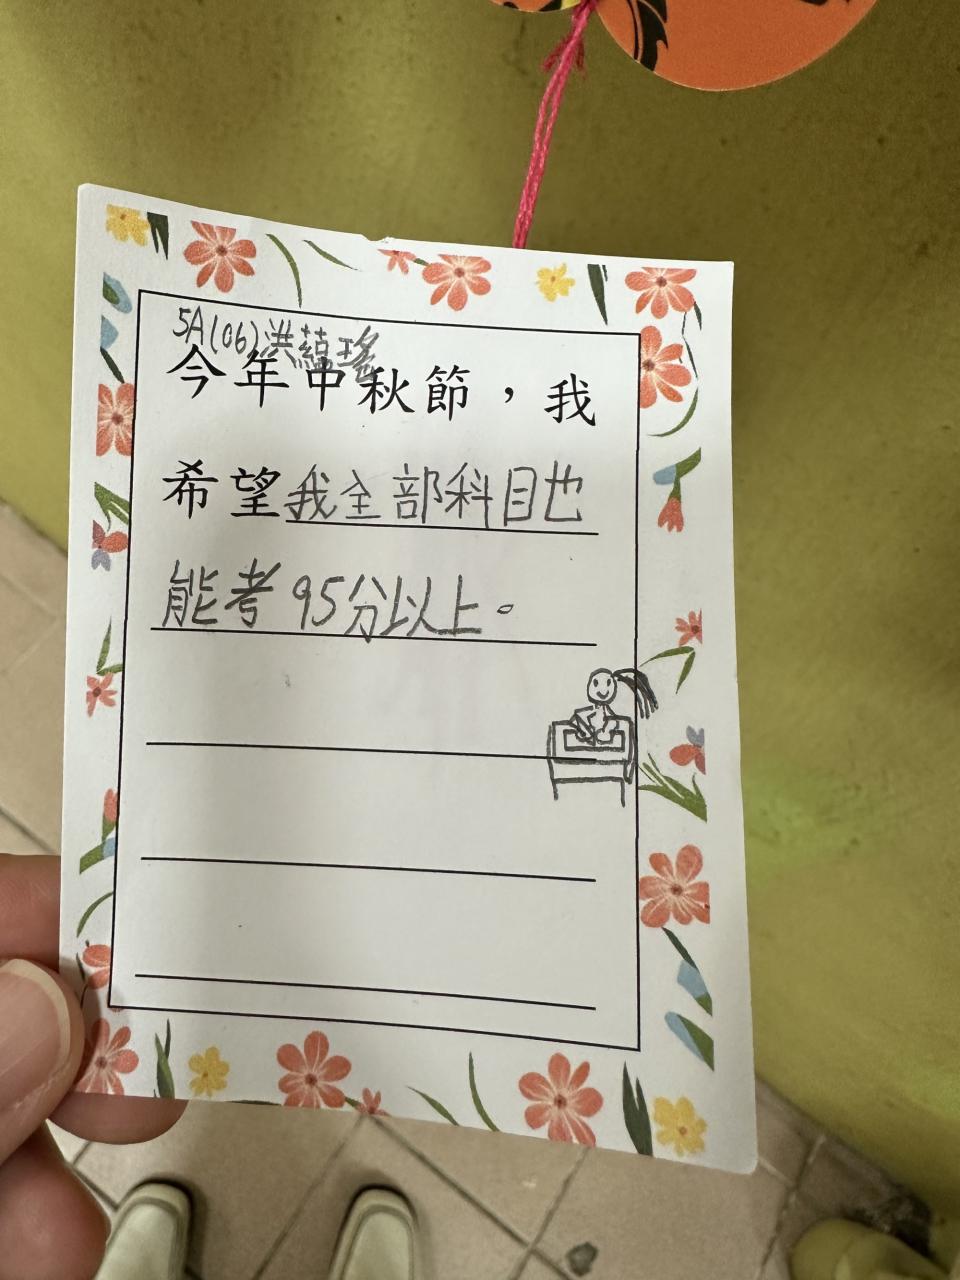 5A(06)洪蘊瑤
今年中秋節，我
希望我全部科目也
能考95分以上。